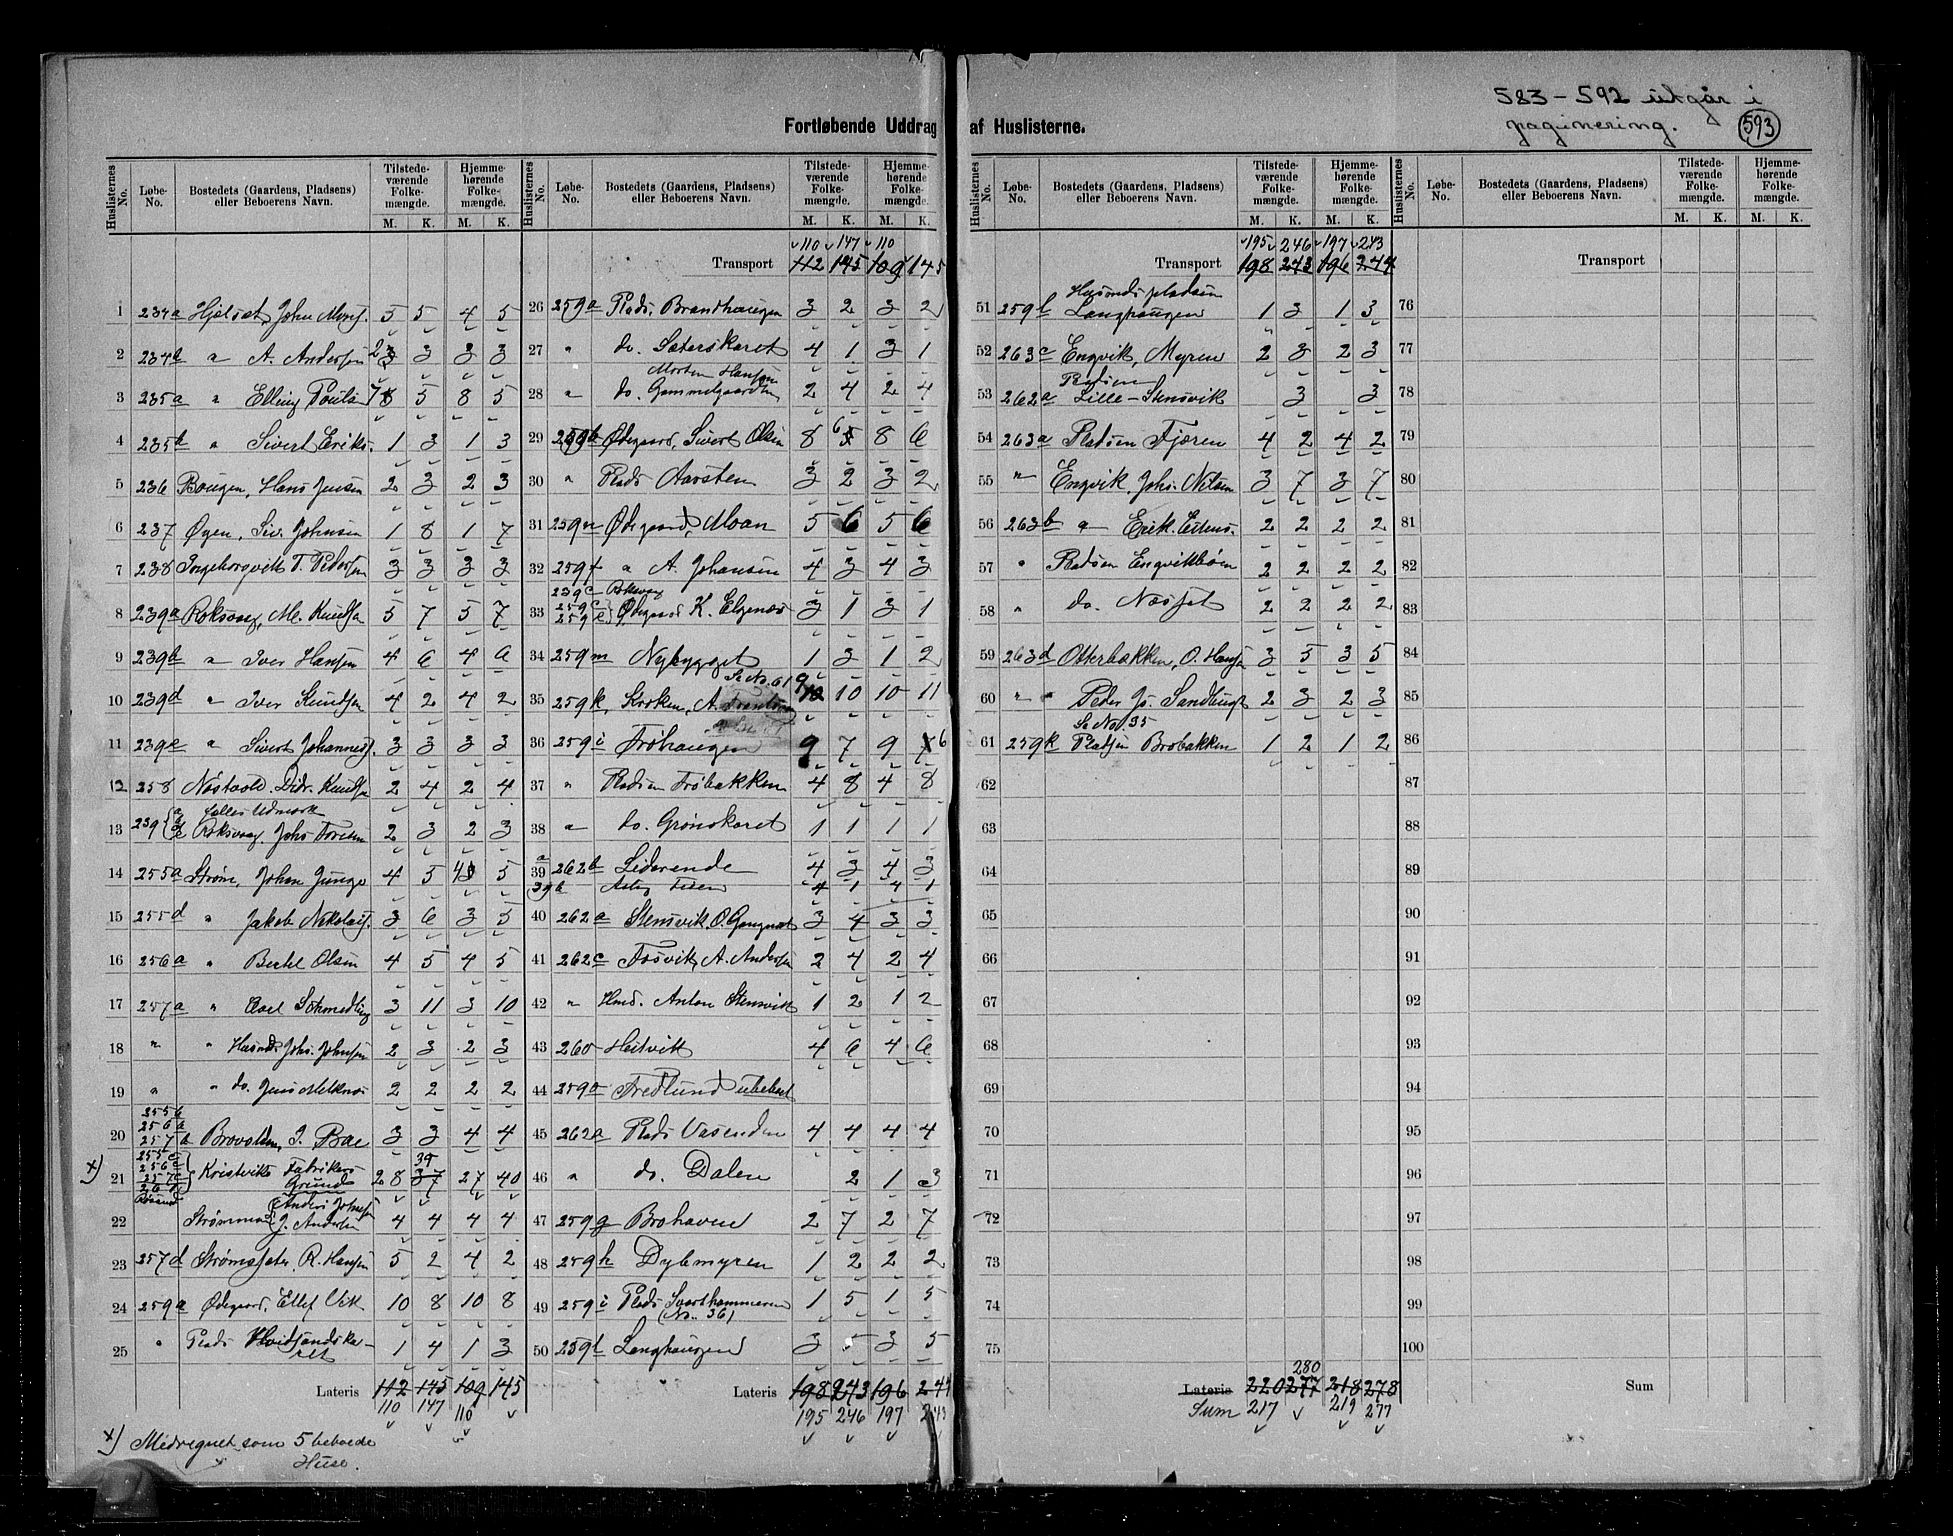 583 - 592 utgår i
paginering. 593
Fortløbende Uddrag af Huslisterne.
Huslisternes No. Løbe-No. Bostedets (Gaardens, Pladsens) eller Beboerens Navn. Tilstedeværende Folkemængde. M. K. Hjemmehørende Folkemængde. M. K.
1 234a Hjelset, John Mons. 5 5 4 5
2 234b " A. Andersen 2 3 3 3
3 235a " Elling Pouls 7 5 8 5
4 235b " Sivert Eriks. 1 3 1 3
5 236 Baugen, Hans Jensen 2 3 2 3
6 237 Øyen, Siv. Johnsen 1 8 1 7
7 238 Ingeborgvik T. Pedersen 3 3 3 3
8 239a Roksvaag, M. Knudsen 5 7 5 7
9 239b " Iver Hansen 4 6 4 6
10 239d " Iver Knudsen 4 2 4 2
11 239e " Sivert Johannes. 3 3 3 3
12 258 Nøstvold, Didr. Knudsen 2 4 2 4
Fælles Udmark
13 239 Roksvaag, Johs Toresen 2 3 2 3
14 255a Strøm, Johan Junge 4 5 4 5
15 255d " Jakob Nikolais. 3 6 3 5
16 256a " Bertel Olsen 4 5 4 5
17 257a " Axel Schmedling 3 11 3 10
18 " " Husmd. Johs. Johnsen 2 3 2 3
19 " " do. Jens Melknes 2 2 2 2
255b
256b
20 257b Brovolden, J. Bae 3 3 4 4
255c
256c
x) 21 257c Kristviks Fabrikers Grund 28 37 27 40
22 Strømmen Anders Johnsen J. Andersen 4 4 4 4
23 257d Strømsæter, R. Hansen 5 2 4 2
24 259a Ødegaard, Ellef Vik 10 8 10 8
25 " Plads Hvidsandskaret 1 4 1 3
Lateris 112 145 109 145
110 147 110
x) Medregnet som 5 beboede
Huse.
Huslisternes No. Løbe-No. Bostedets (Gaardens, Pladsens) eller Beboerens Navn. Tilstedeværende Folkemængde. M. K. Hjemmehørende Folkemængde. M. K.
110 147 110
Transport 112 145 109 145
26 259a Plads. Brandhaugen 3 2 3 2
27 " do. Sæterskaret 4 1 3 1
Morten Hansen
28 " do. Gammelgaarden 2 4 2 4
29 259b Ødegaard, Sivert Olsen 8 6 8 6
30 " Plads Aarsten 3 2 3 2
31 259n Ødegaard, Moan 5 6 5 6
32 259f " A. Johansen 4 3 4 3
239c Roksvag
33 259c 259e Ødegaard K. Elgenes 3 1 3 1
34 259m Nybygget 1 3 1 2
Se No. 61
35 259k Kroken, A. Frantsen 9 10 10 11
36 259i Frøhaugen 9 7 9 6
37 " Pladsen Frøbakken 4 8 4 8
38 " do. Grønskaret 1 1 1 1
a
39 262b Liderende 4 3 4 3
39b 4 1 4 1
40 262a Stensvik, O. Gangnæs 3 4 3 3
41 262c Fosvik, A. Andersen 2 4 2 4
42 " Husd. Anton Stensvik 1 2 1 2
43 260 Heitvik 4 6 4 6
44 259o Fredlund ubebot
45 262a Plads Vasenden 4 4 4 4
46 " do. Dalen 2 1 3
47 259g Brohaven 2 7 2 7
48 259h Dybmyren 1 2 2 2
49 259i Plads Svarthammeren (No. 36) 1 5 1 5
50 259l Langhaugen 3 5 3 5
Lateris 198 243 196 244
195 246 197 243
Huslisternes No. Løbe-No. Bostedets (Gaardens, Pladsens) eller Beboerens Navn. Tilstedeværende Folkemængde. M. K. Hjemmehørende Folkemængde. M. K.
195 246 197 243
Transport 198 243 196 244
Husmdspladsen
51 259l Langhaugen 1 3 1 3
52 263c Engvik, Myren 2 3 2 3
Pladsen
53 262a Lille-Stensvik 3 3
54 263a Pladsen Fjæren 4 2 4 2
55 " Engvik, Johs. Nilsen 3 7 3 7
56 263b " Erik Estens. 2 2 2 2
57 " Pladsen Engvikbøen 2 2 2 2
58 " do. Næsset 2 2 2 2
59 263d Otterbakken, O. Hansen 3 5 3 5
60 " " Peder Js. Sandbugt 2 3 2 3
Se No. 35
61 259k Pladsen Brobakken 1 2 1 2
62
63
64
65
66
67
68
69
70
71
72
73
74
75
280
Lateris 220 277 218 278
Sum 217 219 277
Huslisternes No. Løbe-No. Bostedets (Gaardens, Pladsens) eller Beboerens Navn. Tilstedeværende Folkemængde. M. K. Hjemmehørende Folkemængde. M. K.
Transport
76
77
78
79
80
81
82
83
84
85
86
87
88
89
90
91
92
93
94
95
96
97
98
99
100
Sum